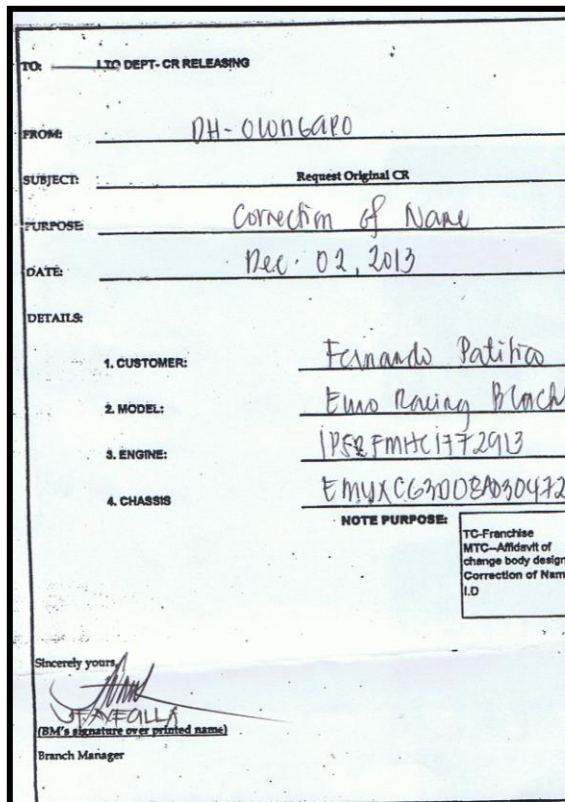 TO: LTO DEPT- CR RELEASING
FROM: DH- OLONGAPO
SUBJECT: Request Original CR
PURPOSE: Correction of Name
DATE: Dec. 02, 2013
DETAILS:
1. CUSTOMER: Fernando
2. MODEL: Euro Racing Black
3. ENGINE:
4. CHASSIS
NOTE PURPOSE:
TC-Franchise
MTC--Affidavit of
change body design
Correction of Nam
I.D
Sincerely yours,
(BM's signature over printed name)
Branch Manager